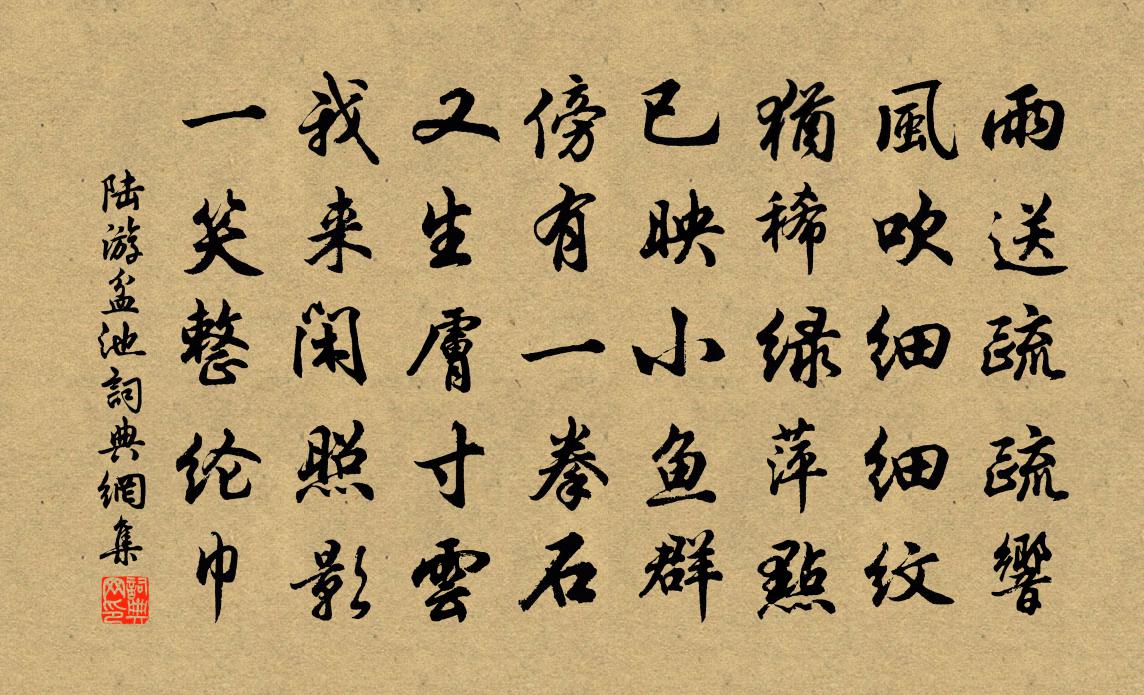 雨送疏疏響
風吹细细纹
猶稀绿萍點
已映小鱼群
傍有一拳石
又生膚寸雲
我来闲照影
一笑整纶巾
陆游盆池詞典網集
詞典网印